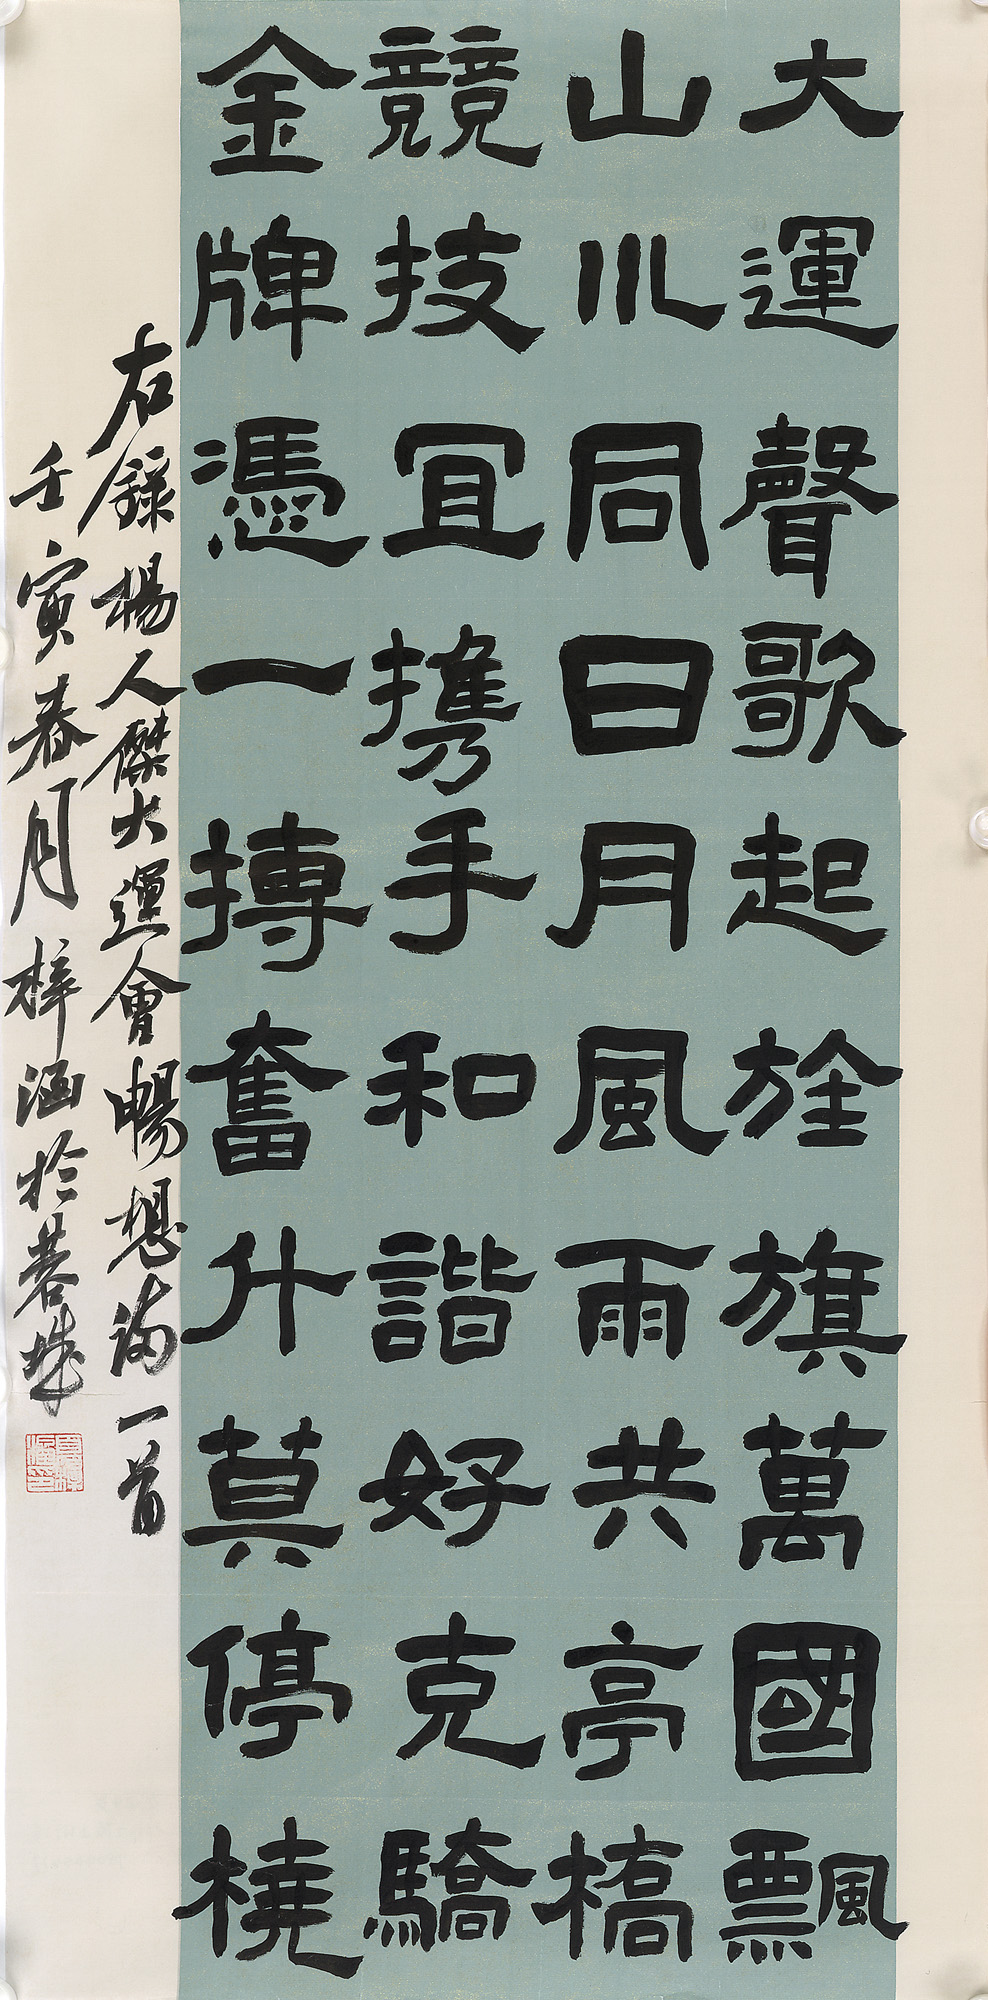 大運聲歌起旌旗萬國飄
山川同日月風雨共亭橋
競技宜携手和諧好克驕
金牌憑一搏奮什莫停橈
右錄楊人傑大運會暢想詩一首
壬寅春月梓涵於蓉城